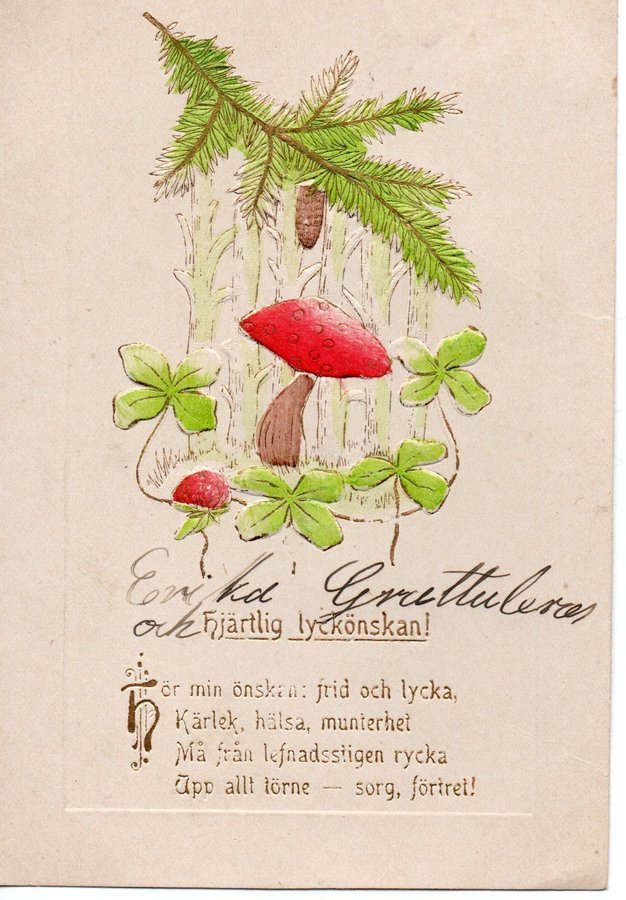 Erika Grattuleras
och Hjärtlig lyckönskan!
Hör min önskan: frid och lycka,
Kärlek, hälsa, munterhet
Må från lefnadsstigen rycka
Upp allt törne — sorg, förtret!